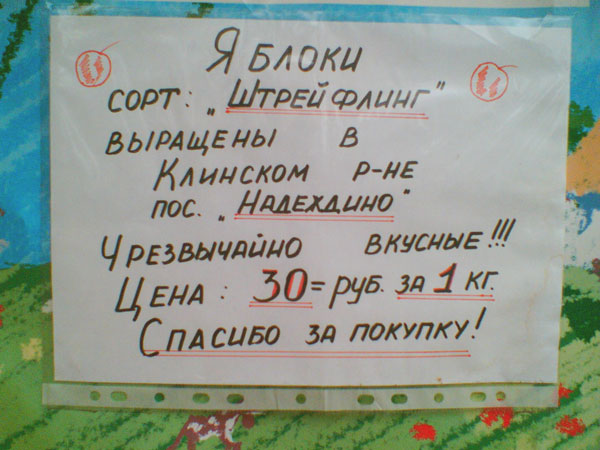 Яблоки
сорт: „Штрейфлинг"
выращены в
Клинском р-не
пос. „Надеждино"
Чрезвычайно вкусные!!!
Цена: 30= руб. за 1 кг.
Спасибо за покупку!